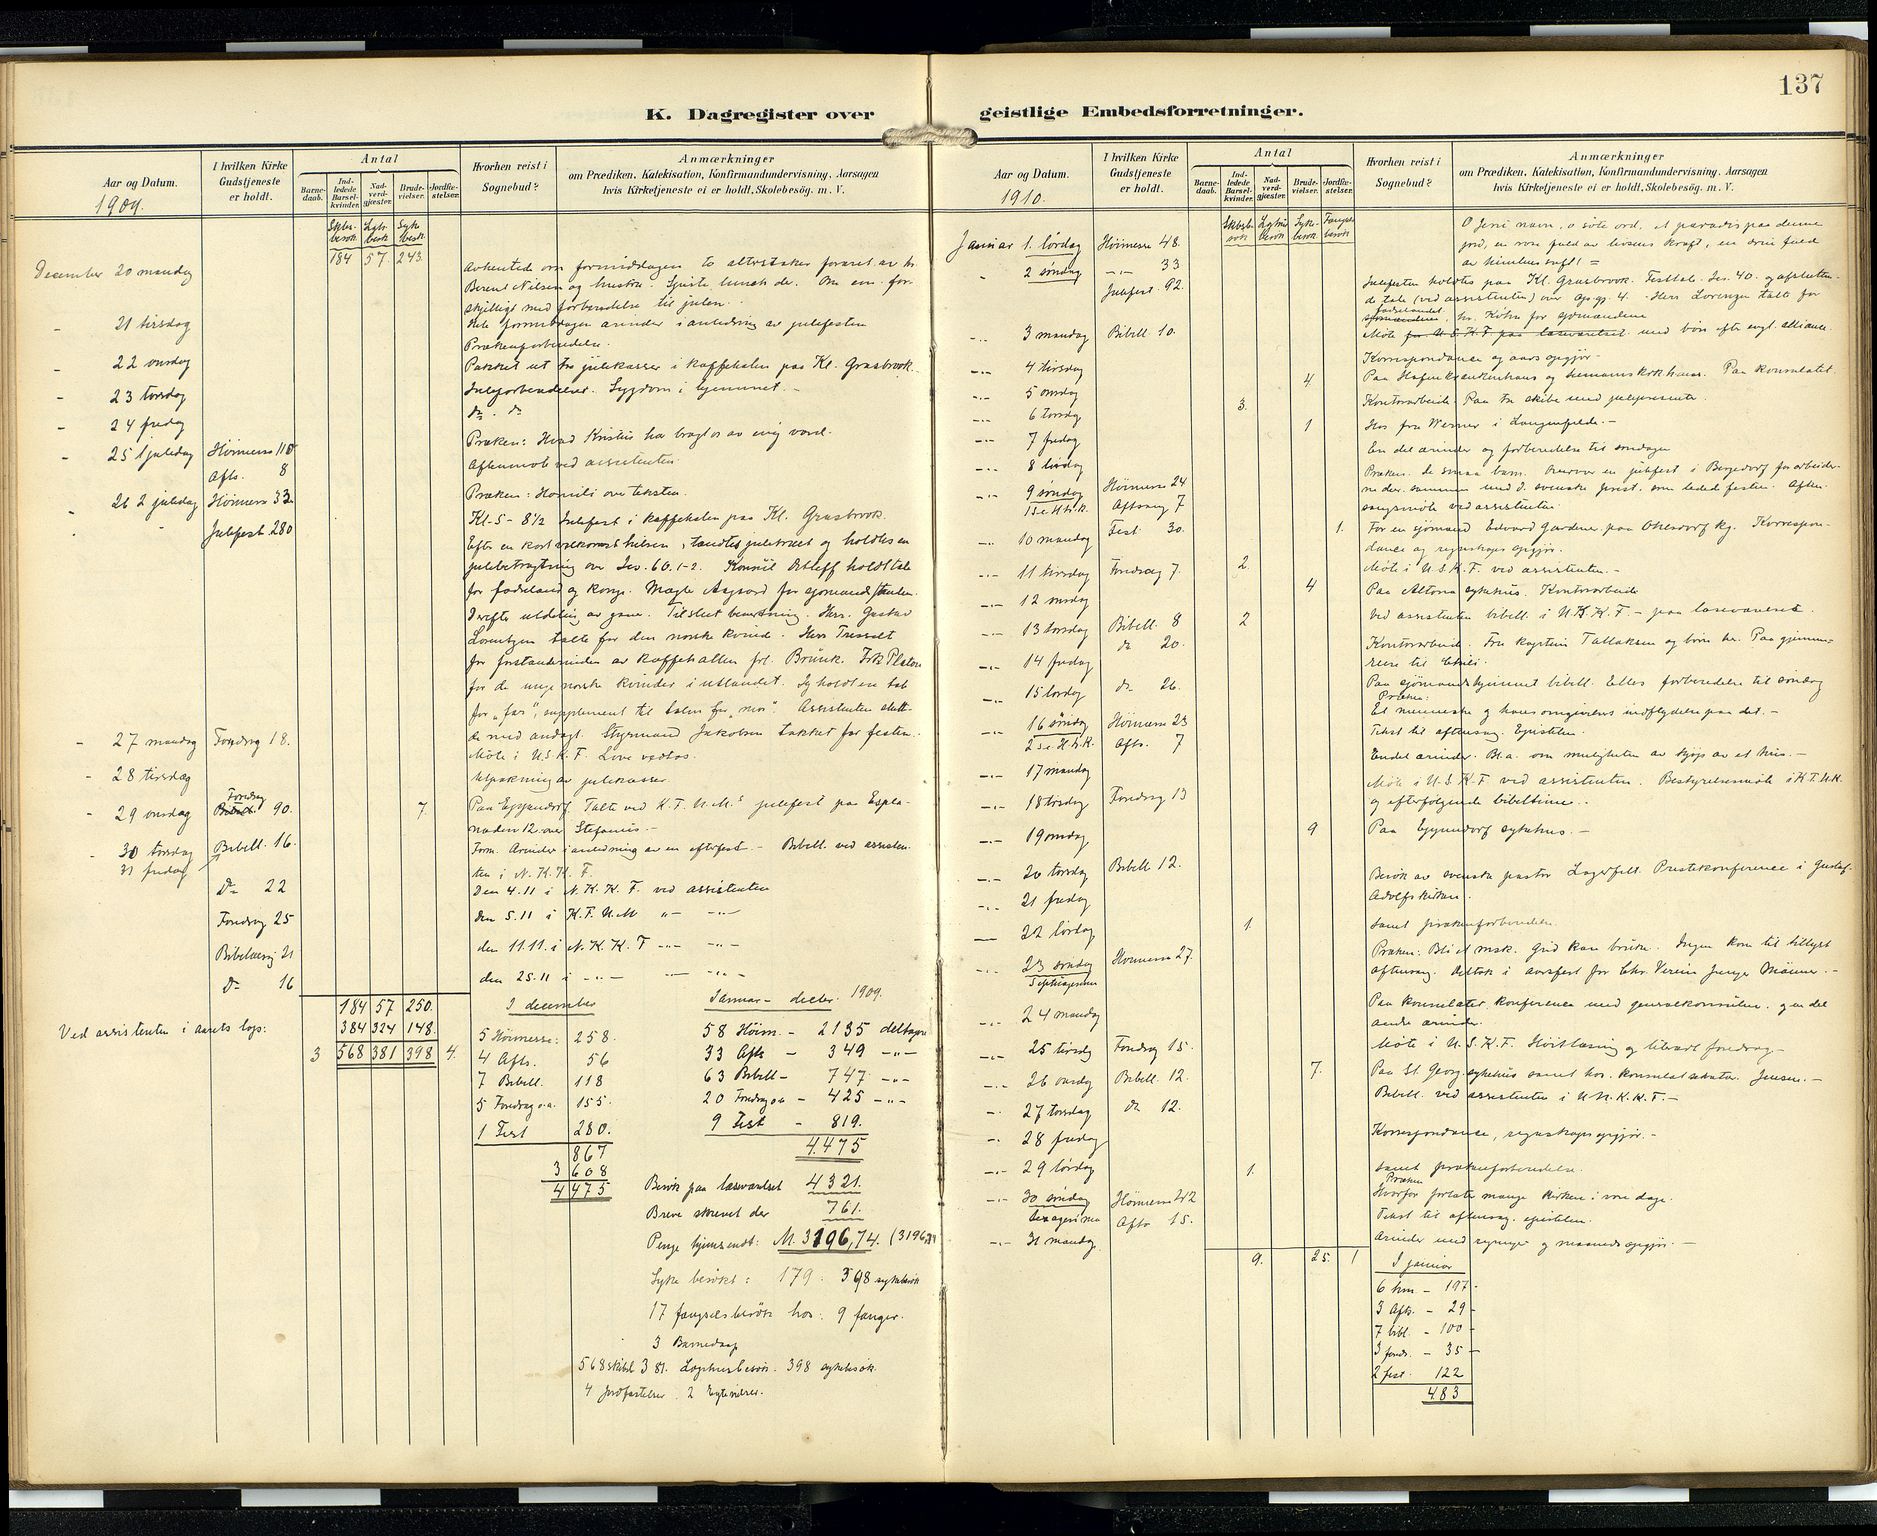 K. Dagregister over
Aar og Datum.
1909.
I hvilken Kirke Gudstjeneste er holdt.
Antal
Barnedaab.
Indledede Barselkvinder.
Nadverdgjæster.
Brudevielser.
Jordfæstelser.
Hvorhen reist i Sognebud?
Anmærkninger
om Prædiken, Katekisation, Konfirmandundervisning, Aarsagen
hvis Kirketjeneste ei er holdt, Skolebesøg. m. V.
184 57. 243.
December 20 mandag
Avhentede om formiddagen to altestaker foræret av
Berent Nilsen og hustru. Spiste lunch der. Om em. for-
skjelligt med forberedelse til julen.
21 tirsdag
Hele formiddagen ærinder i anledning av julefesten
Prækenforberedelse.
22 onsdag
Pakket ut tre julekasser i kaffehalen paa Kl. Grasbrook.
23 torsdag
Juleforberedelser. Sygdom i hjemmet. -
24 fredag
do. do
25 1 juledag Høimesse 115
Præken: Hvad Kristus har bragt os av evig værd.
Afts. 8
Aftenmøte ved assistenten
26 2 juledag Høimesse 33.
Præken: Homili over teksten.
Julefest 280
Kl. 5 - 8½ Julefest i kaffehalen paa Kl. Grasbrook.
Efter en kort velkomsthilsen, tændtes juletræet og holdtes en
julebetragtning over Jes. 60. 1-2. Konsul holdt tale
for fædreland og konge. Mægler Asgaard for sjømandsstanden.
Derefter utdeling av gaver. Tilslut bevertning. Herr. Gustav
Lorentzen talte for den norske kvinde. Herr
for forstanderinden av kaffehallen frl. Brünk. Frk Platou
for de unge norske kvinder i utlandet. Jeg holdt en tale
for "far", supplement til talen for "mor". Assistenten slutte-
de med andagt. Styrmand Jakobsen takket for festen.
27 mandag Foredrag 18.
Møte i U.S.K.F. Love vedtas.
28 tirsdag
Utpakning av julekasser.
29 onsdag Foredrag 90. 7.
Paa Eppendorf. Talte ved K.F.U.M.s julefest paa Espla-
naden 12 over Stefanus. -
30 torsdag Bibell. 16.
Form. Ærinder i anledning av en efterfest. - Bibell. ved assisten-
ten i N.K.K.F.
31 fredag
Do 22
Den 4.11 i N.K.K.F. ved assistenten
Foredrag 25
den 5.11 i K.F.U.M " - -"-
Bibelæsning 21
den 11.11. i N.K.K.F -"- -"-
Do 16
den 25.11 i -"- -"- -"-
184 57 250.
Ved assistenten i aarets løp: 384 324 148.
3 568 381 398 4.
I december
5 Høimesse: 258.
4 Afts. 56
7 Bibell. 118
5 Foredrag o.a. 155.
1 Fest 280.
867
3 608
4 475
Januar - decbr. 1909.
58 Høim. - 2135 deltagere
33 Afts - 349 -"-
63 Bibell - 747 -"-
20 Foredrag o.a - 425 -"-
9 Fest - 819.
4.475
Besøk paa læseværelset 4321.
Breve skrevet der 761.
Penge hjemsendt: M. 3196,74.
Syke besøkt: 179. 398 sykebesøk
17 fængselsbesøk hos. 9 fanger.
3 Barnedaap
568 skibsb. 381. Logihusbesøk. 398 sykebesøk.
4 Jordfæstelser 2 Egtevielser.
137
geistlige Embedsforretninger.
Aar og Datum.
1910.
I hvilken Kirke Gudstjeneste er holdt.
Antal
Barnedaab.
Indledede Barselkvinder.
Nadverdgjæster.
Brudevielser.
Jordfæstelser.
Hvorhen reist i Sognebud?
Anmærkninger
om Prædiken, Katekisation, Konfirmandundervisning, Aarsagen
hvis Kirketjeneste ei er holdt, Skolebesøg. m. V.
Januar 1. lørdag Høimesse 48.
O Jesu navn, o søte ord, et paradis paa denne
jord, en rose fuld av livsens kraft, en drue fuld
av himlens saft! =
2 søndag -"- 33
Julefest 92.
Julefesten holdtes paa Kl. Grasbrook. Festtale Jes. 40. og afslutten-
de tale (ved assistenten) over ap. gj. 4. Herr Lorenzen talte for
fædrelandet, hr. Köhn for sjømændene
3 mandag Bibell 10.
Møte for U.S.K.F paa læseværelset med bøn efter engl. alliance.
4 tirsdag
Korrespondance og aarsopgjør -
5 onsdag 4
Paa Hafenkrankenhaus og Seemannskrkhaus. Paa konsulatet.
6 torsdag 3.
Kontorarbeide. Paa tre skibe med julepresenter.
7 fredag 1
Hos fru Werner i Langenfelde. -
8 lørdag
En del ærinder og forberedelse til søndagen
9 søndag Høimesse 24
1 s. e. H.t.K. Aftsang 7
Præken. De smaa barn. Derover en julefest i Bergedorf for arbeider-
ne der. sammen med d. svenske prest. som ledet festen. Aften-
sangsmøte ved assistenten.
10 mandag Fest 30. 1.
For en sjømand Edvard Gardener paa Ohlsdorf kg. Korrespon-
dance og regnskapsopgjør.
11 tirsdag Foredrag 7. 2.
Møte i U.S.K.F. ved assistenten. -
12 onsdag 4
Paa Altona sykehus. Kontorarbeide
13 torsdag Bibell. 8 2
Ved assistenten bibell. i U.K.K.F - paa læseværelset.
14 fredag do 20.
Kontorarbeide. Fru kaptein Tallaksen og børn her. Paa gjennem-
reise til Chili.
15 lørdag do 26.
Paa sjømandshjemmet bibell. Ellers forberedelse til søndag
16 søndag Høimesse 23
2 s.e. H.t.K. Afts. 7
Præken:
Et menneske og hans omgivelsers indflydelse paa det. -
Tekst til aftensang. Epistelen.
17 mandag
Endel ærinder. Bl.a. om muligheten av kjøp av et hus. -
18 tirsdag Foredrag 13
Møte i U.S.K.F ved assistenten. Bestyrelsesmøte i K.F.U.K.
og efterfølgende bibeltime. -
19 onsdag 9
Paa Eppendorf sykehus. -
20 torsdag Bibell 12.
Besøk av svenske pastor Lagerfelt. Prestekonference i Gustaf-
Adolfskirken.
21 fredag
22 lørdag 1.
Samt prækenforberedelse.
23 søndag Høimesse 27.
Septuagesima
Præken: Bli et msk. Gud kan bruke. Ingen kom til tillyst
aftensang. Deltok i aarsfest for Chr. Verein Junger Männer. -
24 mandag
Paa konsulatet, konference med generalkonsulen. og en del
andre ærinder.
25 tirsdg Foredrag 15.
Møte i U.S.K.F. Høitlæsning og literært foredrag -
26 onsdag Bibell. 12. 7.
Paa St. Georg sykehus samt hos konsulatsekretær Jensen. -
27 torsdag do 12.
Bibell. ved assistenten i U.N.K.K.F. -
28 fredag
Korrespondance, regnskapsopgjør. -
29 lørdag 1.
Samt prækenforberedelse.
30 søndag Høimesse 42
Sexagesima Afts 15.
Præken
Hvorfor forlater mange kirken i vore dage.
Tekst til aftensang. epistelen.
31 mandag
Ærinder med regninger og maanedsopgjør. -
9. 25. 1
I januar
6 hm - 197 -
3 Afts. - 29 -
7 bibl. - 100 -
3 foredr. - 35 -
2 fest 122
483